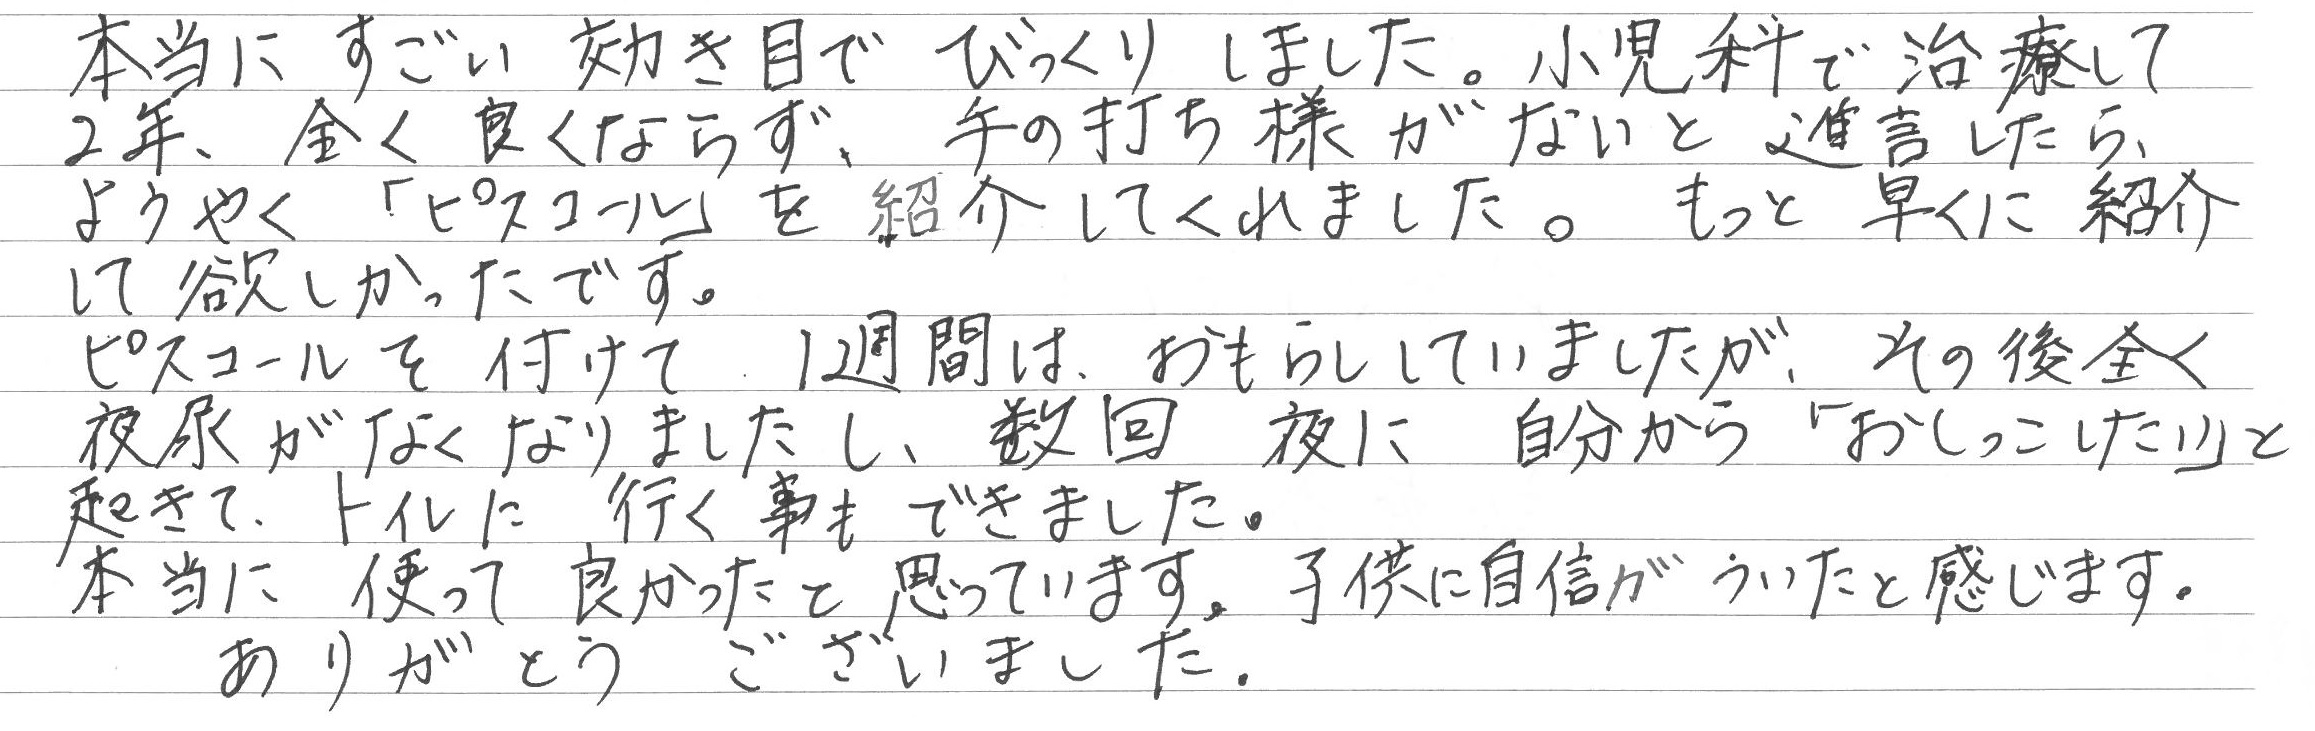 本当に すごい 効き目で びっくり しました。小児科で治療して
2年、全く良くならず、手の打ち様がないと進言したら、
ようやく「ピスコール」を紹介してくれました。もっと早くに紹介
して欲しかったです。
ピスコールを付けて 1週間は、おもらししていましたが、その後全く
夜尿がなくなりましたし、数回 夜に 自分から「おしっこしたい」と
起きて、トイレに 行く事もできました。
本当に 使って良かったと思っています。子供に自信がついたと感じます。
ありがとう ございました。